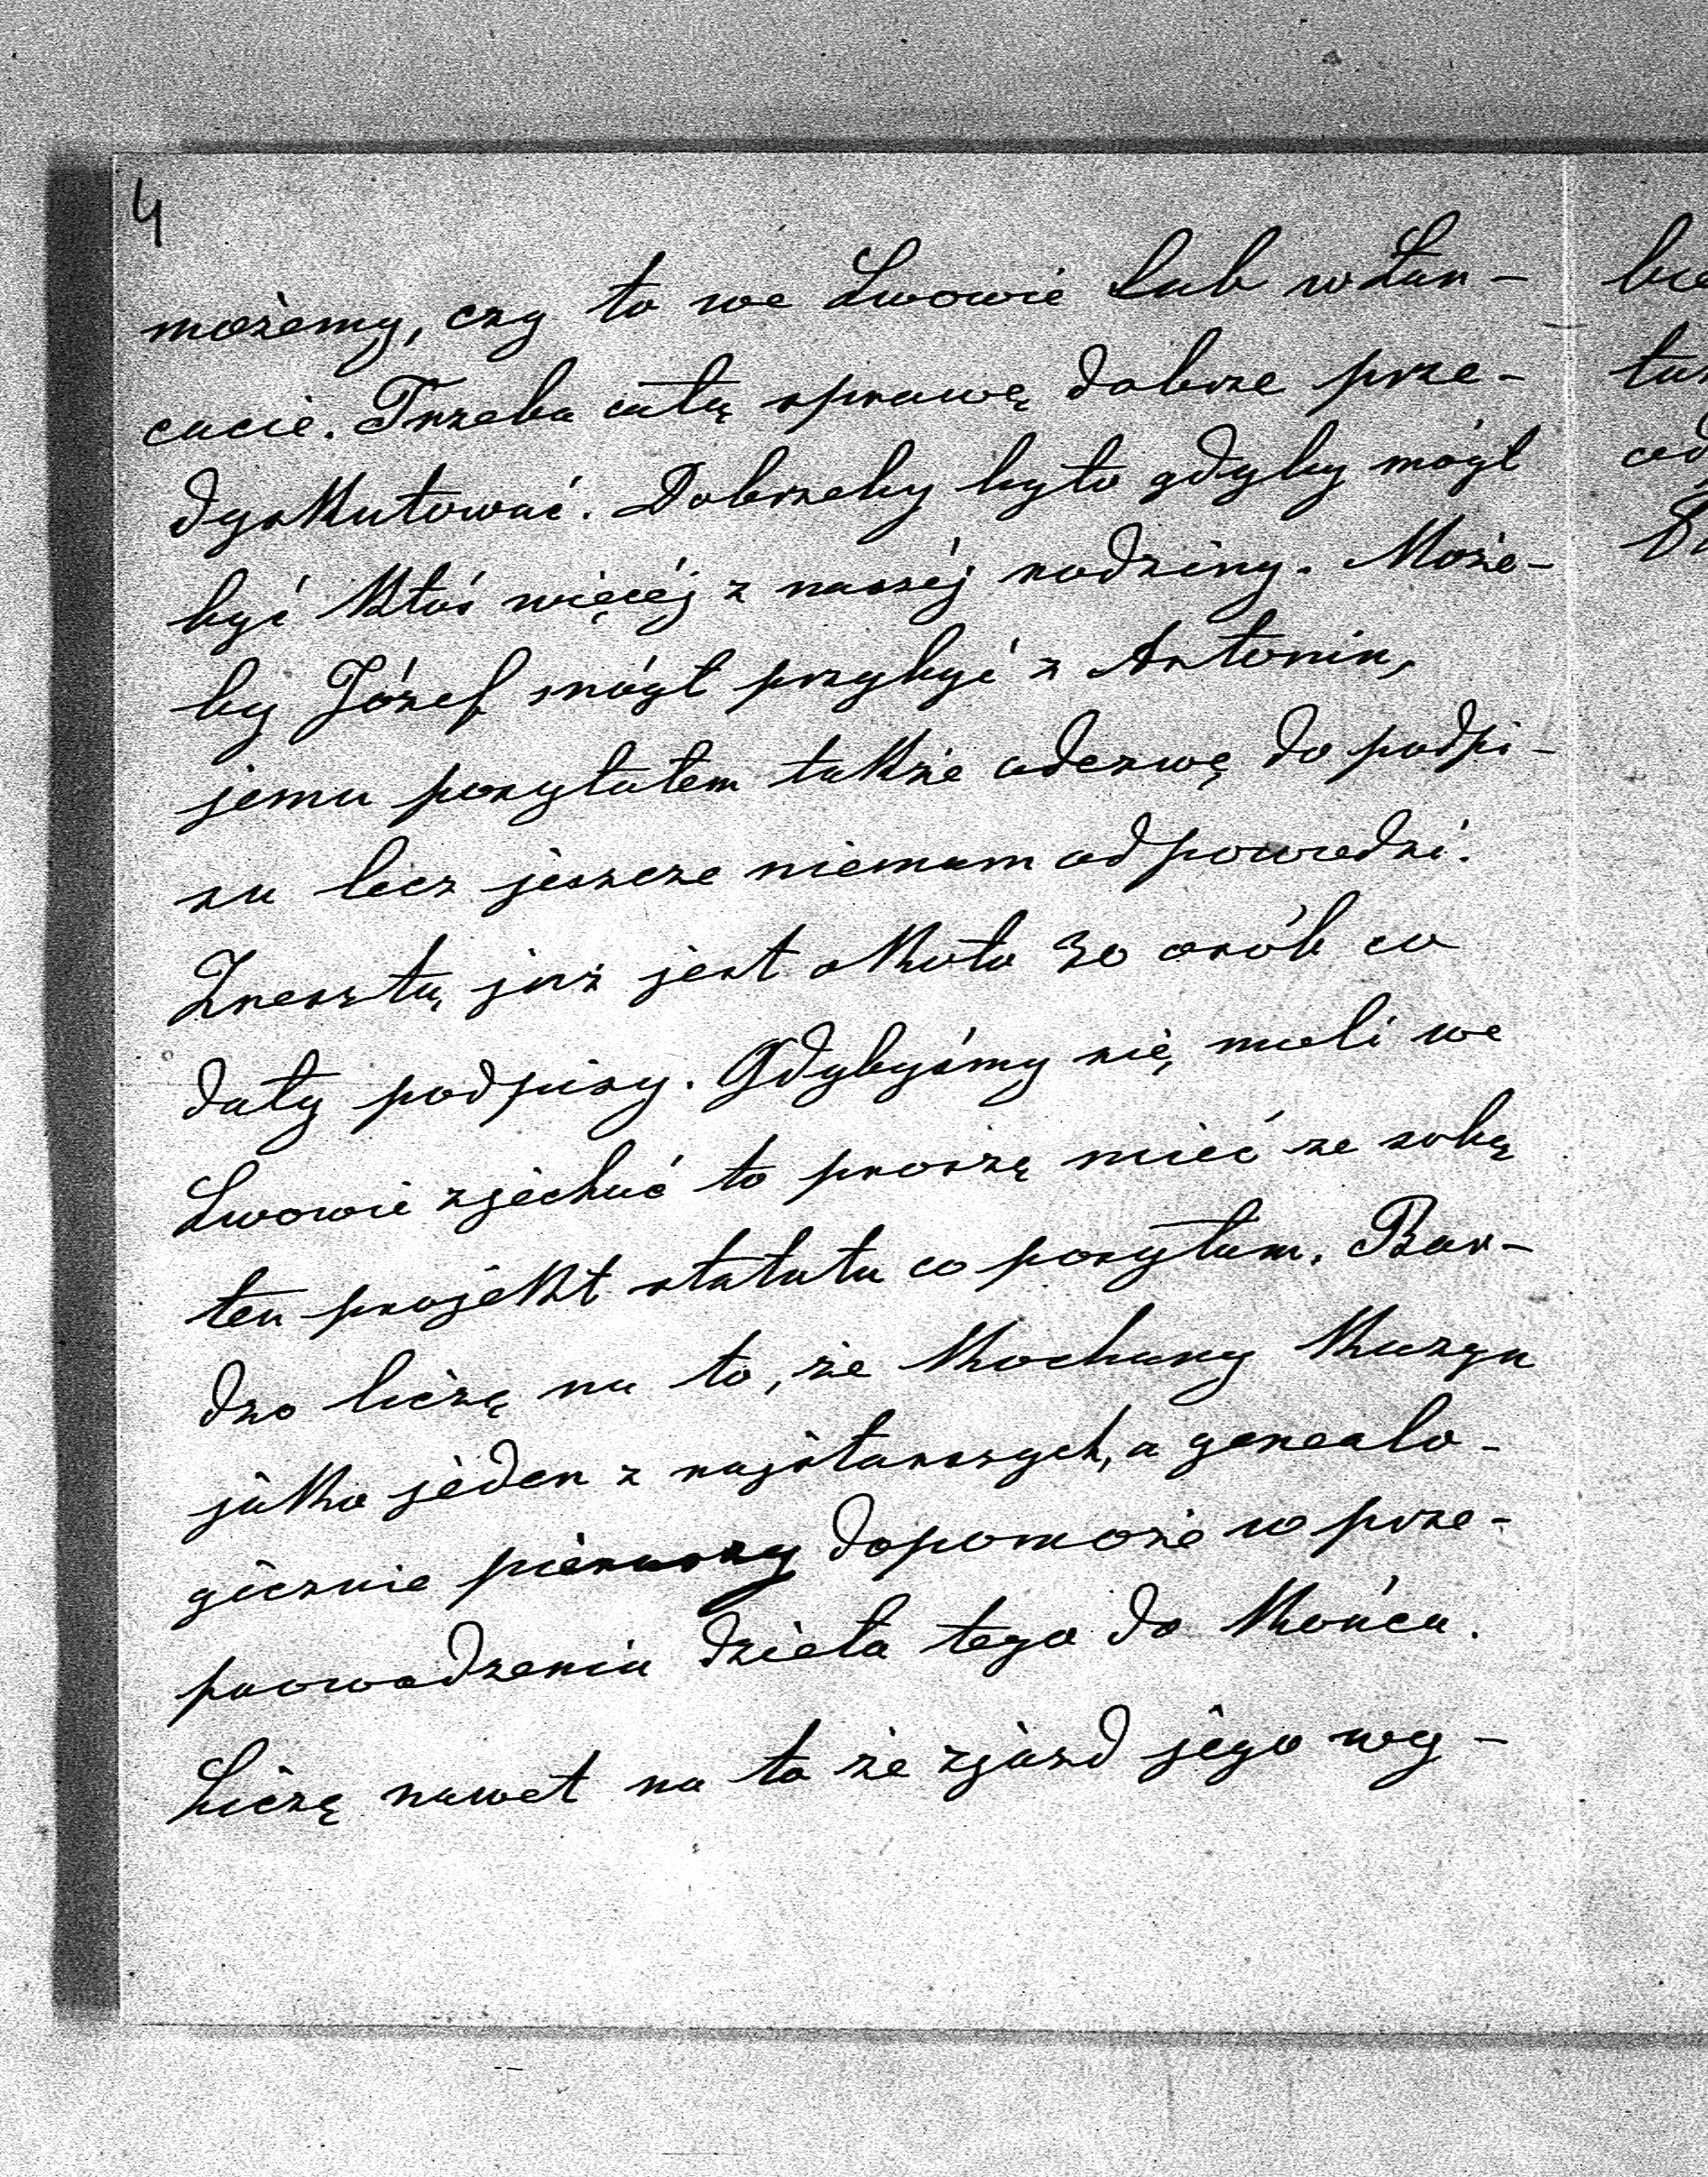 4
możemy, czy to we Lwowie lub w Łan-
cucie. Trzeba całą sprawę dobrze prze-
dyskutować. Dobrzeby było gdyby mógł
być ktoś więcéj z naszéj rodziny. Może-
by Józef mógł przybyć z Antonin,
jemu posyłałem także odezwę do podpi-
su lecz jeszcze niemam odpowiedzi.
Zresztą już jest około 30 osób co
dały podpisy. Gdybyśmy się mieli we
Lwowie zjechać to proszę mieć ze sobą
ten projekt statutu co posyłam. Bar-
dzo liczę na to, że Kochany Kuzyn
jako jeden z najstarszych, a genealo-
gicznie pierwszy dopomoże w prze-
prowadzeniu dzieła tego do końca.
Liczę nawet na to że zjazd jego wy-